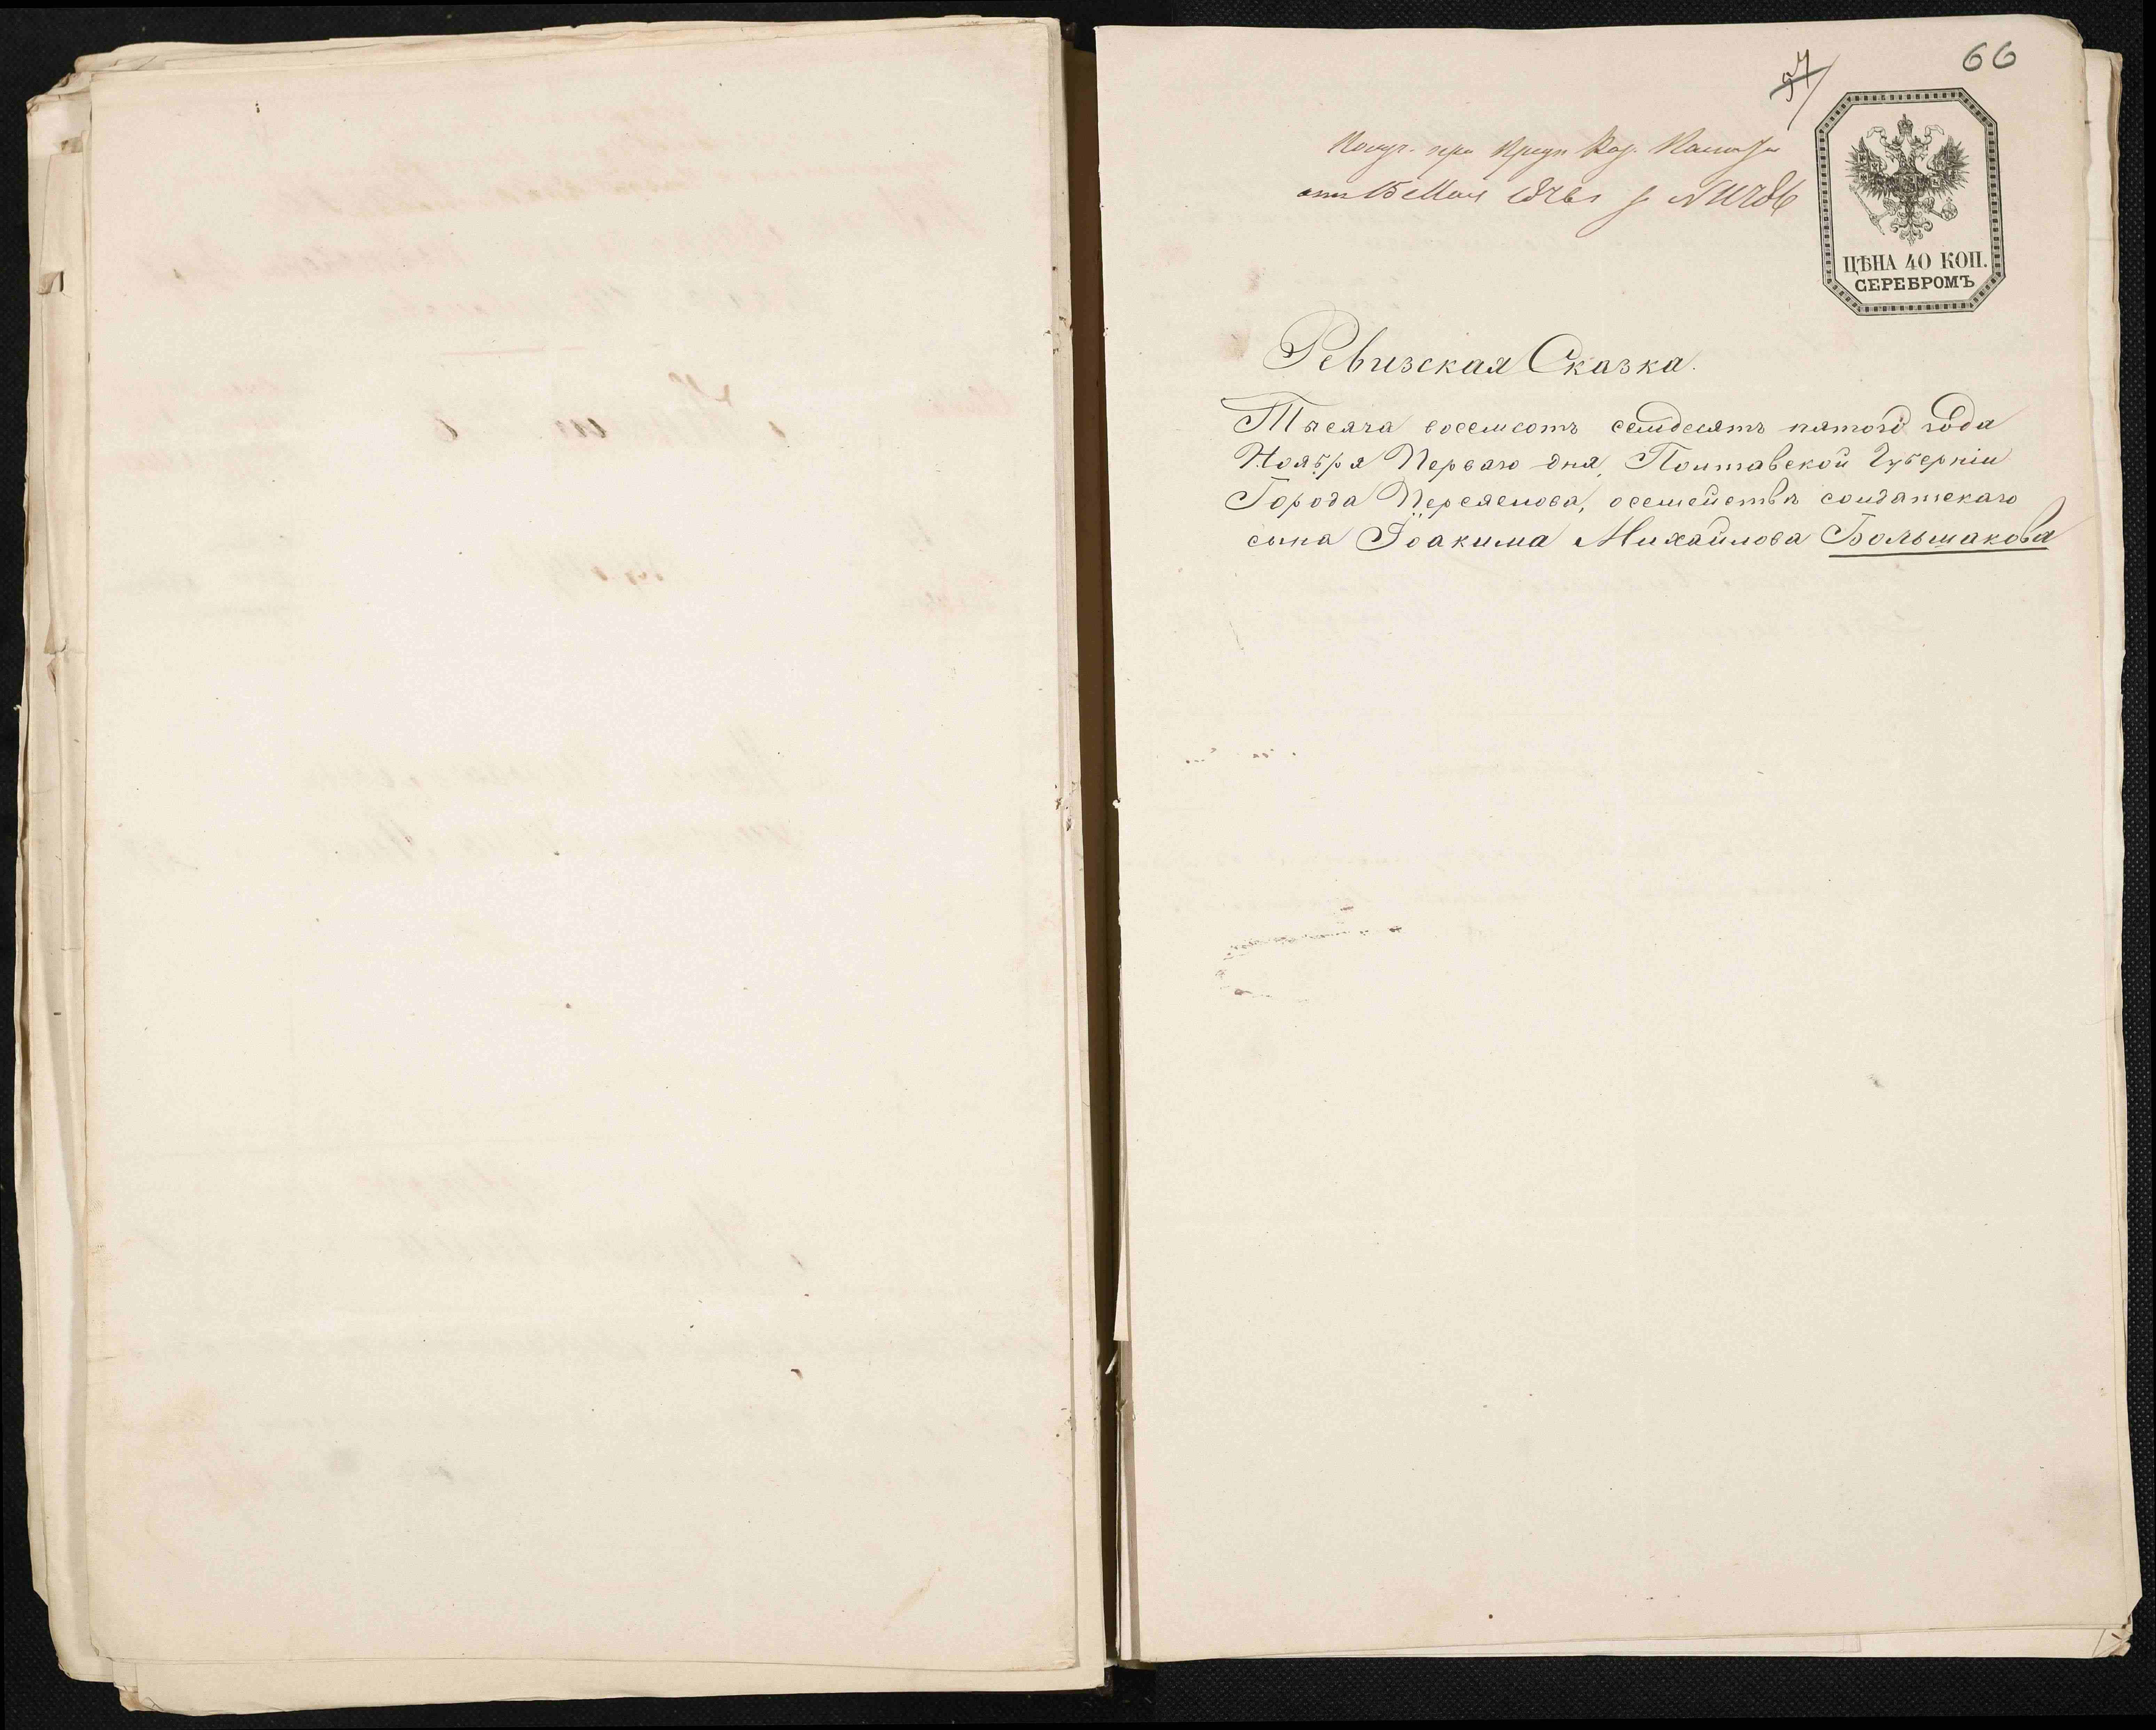 66
57
Получ. при Предп Каз. Палаты
отъ 15 Мая 1876 г №
ЦѢНА 40 КОП.
СЕРЕБРОМЪ
Ревизская Сказка.
Тысяча восемсотъ семдесятъ пятого года
Ноября Перваго дня, Полтавской Губерніи
Города Переяслова, осемействѣ солдатскаго
сына Іоакима Михайлова Большакова